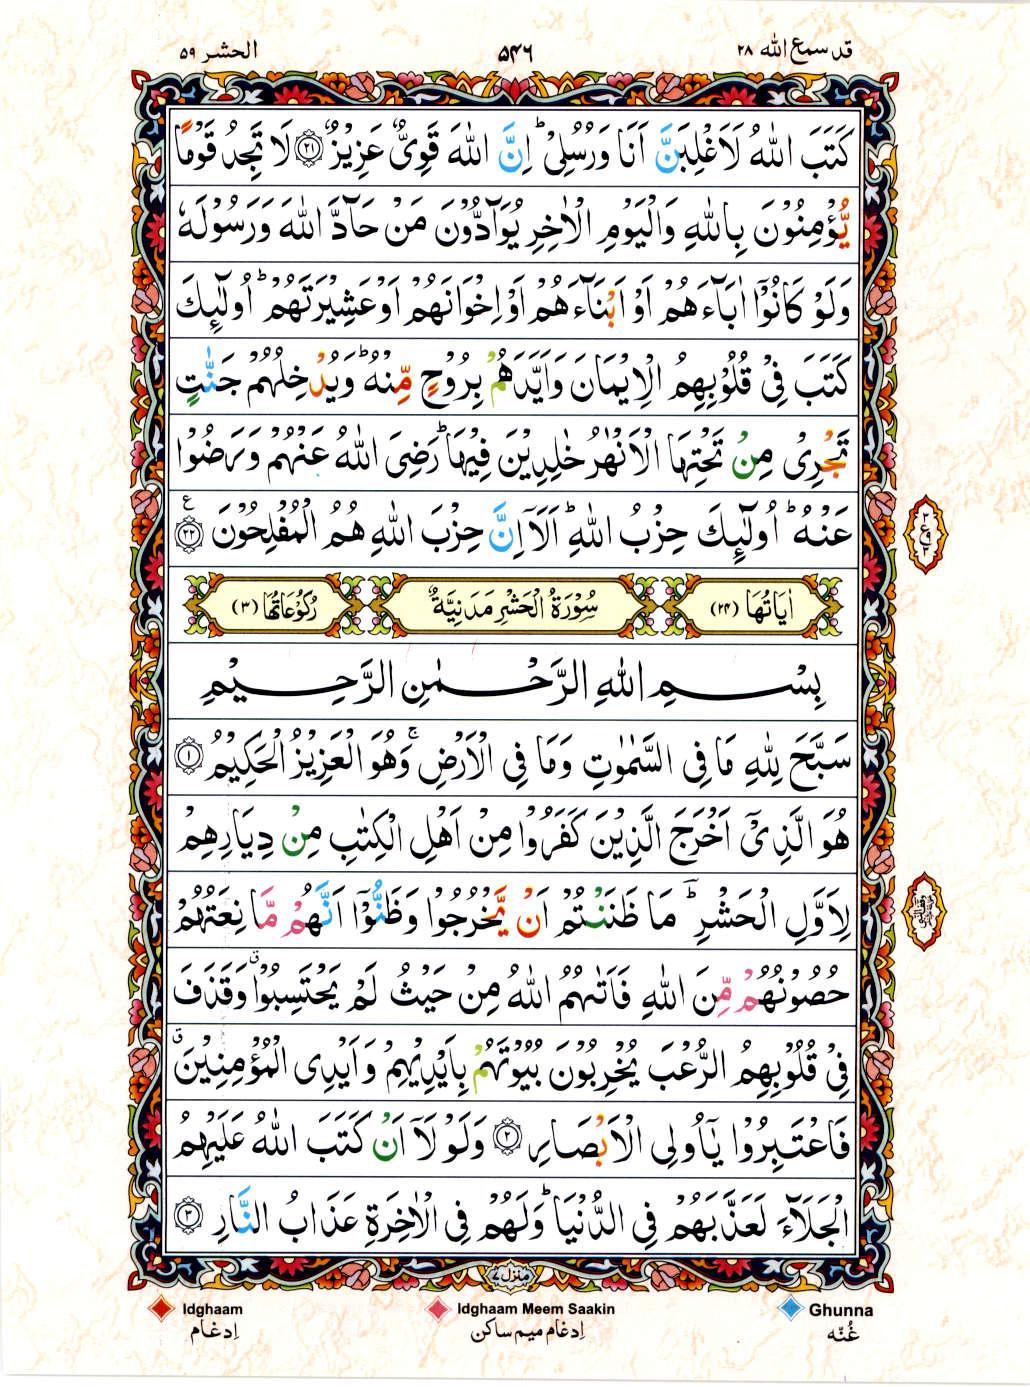 قد سمع الله ٢٨
٥٤٦
الحشر ٥٩
كَتَبَ اللّٰهُ لَاَغْلِبَنَّ اَنَا وَرُسُلِیْ ؕ اِنَّ اللّٰهَ قَوِیٌّ عَزِیْزٌ ﴿۲۱﴾ لَا تَجِدُ قَوْمًا
یُّؤْمِنُوْنَ بِاللّٰهِ وَالْیَوْمِ الْاٰخِرِ یُوَآدُّوْنَ مَنْ حَآدَّ اللّٰهَ وَرَسُوْلَهٗ
وَلَوْ كَانُوْۤا اٰبَآءَهُمْ اَوْ اَبْنَآءَهُمْ اَوْ اِخْوَانَهُمْ اَوْ عَشِیْرَتَهُمْ ؕ اُولٰٓىِٕكَ
كَتَبَ فِیْ قُلُوْبِهِمُ الْاِیْمَانَ وَاَیَّدَهُمْ بِرُوْحٍ مِّنْهُ ؕ وَیُدْخِلُهُمْ جَنّٰتٍ
تَجْرِیْ مِنْ تَحْتِهَا الْاَنْهٰرُ خٰلِدِیْنَ فِیْهَا ؕ رَضِیَ اللّٰهُ عَنْهُمْ وَرَضُوْا
عَنْهُ ؕ اُولٰٓىِٕكَ حِزْبُ اللّٰهِ ؕ اَلَاۤ اِنَّ حِزْبَ اللّٰهِ هُمُ الْمُفْلِحُوْنَ ﴿۲۲﴾ ع
اٰیَاتُهَا (۲۴) سُوْرَةُ الْحَشْرِ مَدَنِیَّةٌ رُكُوْعَاتُهَا (۳)
بِسْمِ اللّٰهِ الرَّحْمٰنِ الرَّحِیْمِ
سَبَّحَ لِلّٰهِ مَا فِی السَّمٰوٰتِ وَمَا فِی الْاَرْضِ ۚ وَهُوَ الْعَزِیْزُ الْحَكِیْمُ ﴿۱﴾
هُوَ الَّذِیْۤ اَخْرَجَ الَّذِیْنَ كَفَرُوْا مِنْ اَهْلِ الْكِتٰبِ مِنْ دِیَارِهِمْ
لِاَوَّلِ الْحَشْرِ ؔؕ مَا ظَنَنْتُمْ اَنْ یَّخْرُجُوْا وَظَنُّوْۤا اَنَّهُمْ مَّا نِعَتُهُمْ
حُصُوْنُهُمْ مِّنَ اللّٰهِ فَاَتٰىهُمُ اللّٰهُ مِنْ حَیْثُ لَمْ یَحْتَسِبُوْا ۗ وَقَذَفَ
فِیْ قُلُوْبِهِمُ الرُّعْبَ یُخْرِبُوْنَ بُیُوْتَهُمْ بِاَیْدِیْهِمْ وَاَیْدِی الْمُؤْمِنِیْنَ ۗ
فَاعْتَبِرُوْا یٰۤاُولِی الْاَبْصَارِ ﴿۲﴾ وَلَوْلَاۤ اَنْ كَتَبَ اللّٰهُ عَلَیْهِمُ
الْجَلَآءَ لَعَذَّبَهُمْ فِی الدُّنْیَا ؕ وَلَهُمْ فِی الْاٰخِرَةِ عَذَابُ النَّارِ ﴿۳﴾
منزل ٧
Idghaam Idghaam Meem Saakin Ghunna
اِدغام اِدغام میم ساکن غُنّه